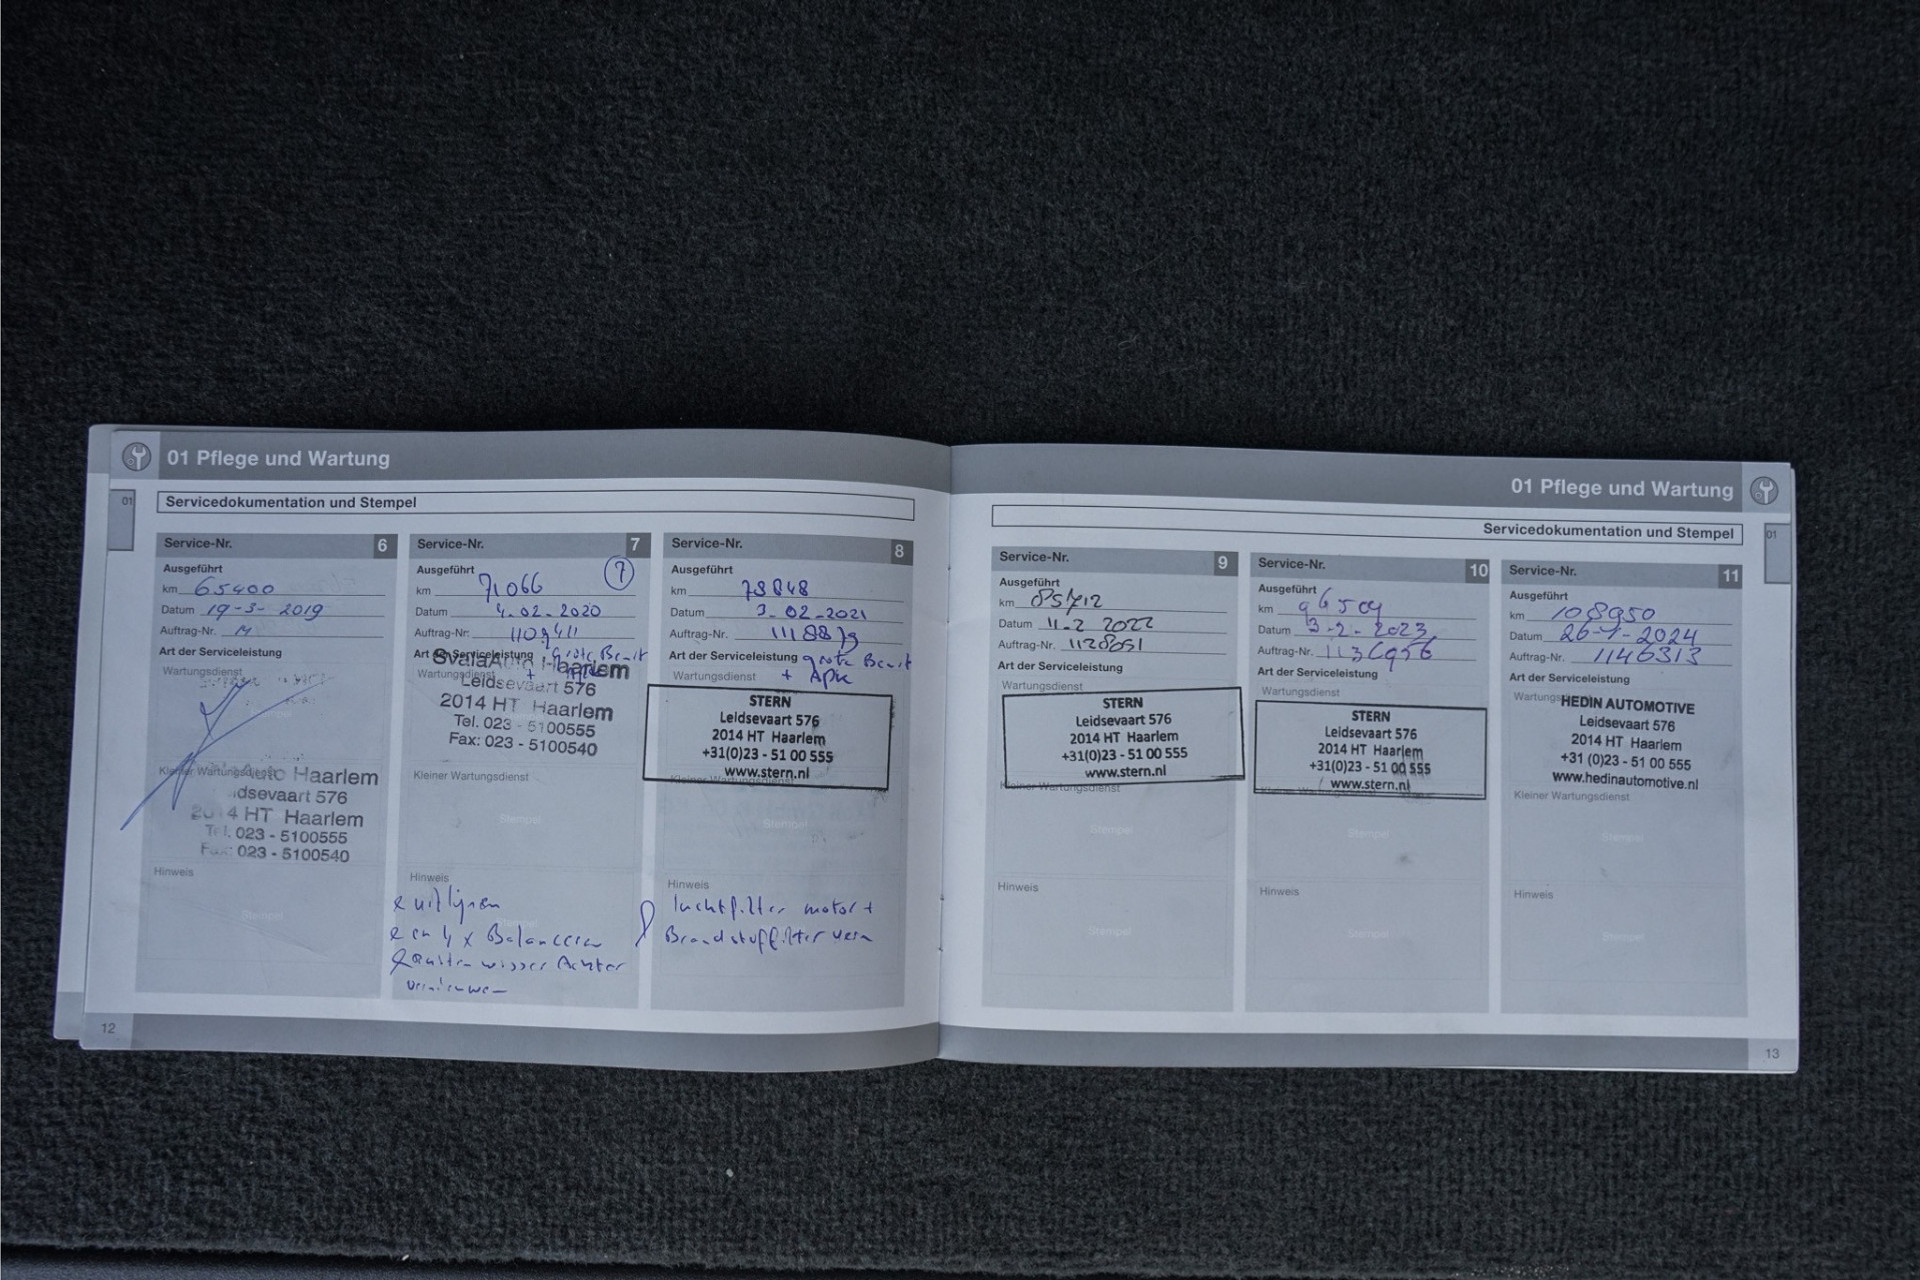 01 Pflege und Wartung
01
Servicedokumentation und Stempel
Service-Nr. 6
Ausgeführt
km 65400
Datum 19-3- 2019
Auftrag-Nr.
Art der Serviceleistung
Wartungsdienst
Stempel
Kleiner Wartungsdienst
Haarlem
Leidsevaart 576
2014 HT Haarlem
Tel. 023 - 5100555
Fax: 023 - 5100540
Hinweis
Stempel
Service-Nr. 7
Ausgeführt 7
km 71066
Datum 4-02-2020
Auftrag-Nr.
Art der Serviceleistung Grote Beurt
Wartungsdienst +
SvalaAuto Haarlem
Leidsevaart 576
2014 HT Haarlem
Tel. 023 - 5100555
Fax: 023 - 5100540
Kleiner Wartungsdienst
Stempel
Hinweis
uitlijnen
en 4 x Balanceren
wisser Achter
vernieuwen
Service-Nr. 8
Ausgeführt
km 78848
Datum 3-02-2021
Auftrag-Nr.
Art der Serviceleistung grote Beurt
Wartungsdienst + Apk
STERN
Leidsevaart 576
2014 HT Haarlem
+31(0)23 - 51 00 555
www.stern.nl
Kleiner Wartungsdienst
Stempel
Hinweis
luchtfilter motor +
Brandstoffilter vern
12
01 Pflege und Wartung
01
Servicedokumentation und Stempel
Service-Nr. 9
Ausgeführt
km 85712
Datum 11-2 2022
Auftrag-Nr. 1128651
Art der Serviceleistung
Wartungsdienst
STERN
Leidsevaart 576
2014 HT Haarlem
+31(0)23 - 51 00 555
www.stern.nl
Kleiner Wartungsdienst
Stempel
Hinweis
Stempel
Service-Nr. 10
Ausgeführt
km 96509
Datum 3-2-2023
Auftrag-Nr. 1136956
Art der Serviceleistung
Wartungsdienst
STERN
Leidsevaart 576
2014 HT Haarlem
+31(0)23 - 51 00 555
www.stern.nl
Stempel
Hinweis
Stempel
Service-Nr. 11
Ausgeführt
km 108950
Datum 26-1-2024
Auftrag-Nr. 1146313
Art der Serviceleistung
Wartungsdienst
HEDIN AUTOMOTIVE
Leidsevaart 576
2014 HT Haarlem
+31 (0)23 - 51 00 555
www.hedinautomotive.nl
Kleiner Wartungsdienst
Stempel
Hinweis
Stempel
13